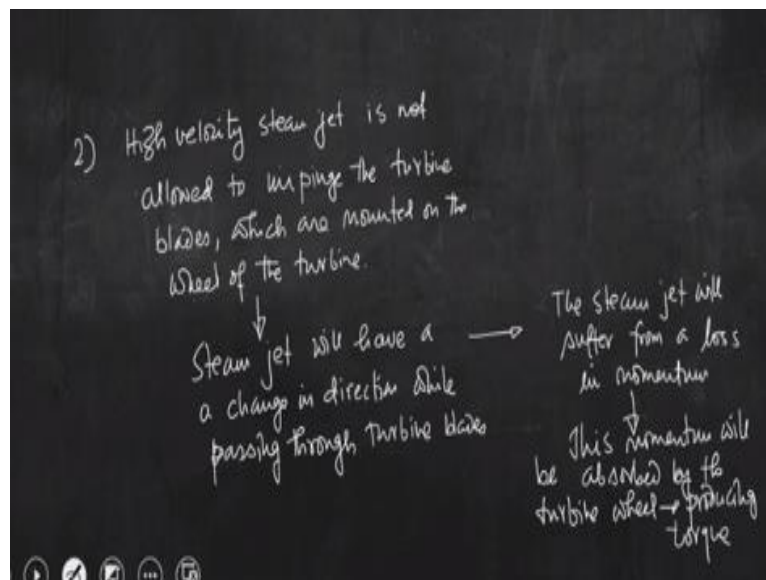 2) High velocity steam jet is not
allowed to impinge the turbine
blades, which are mounted on the
wheel of the turbine.
↓
Steam jet will have a
a change in direction while
passing through turbine blades
→
The steam jet will
suffer from a loss
in momentum
↓
This momentum will
be absorbed by the
turbine wheel → producing
torque